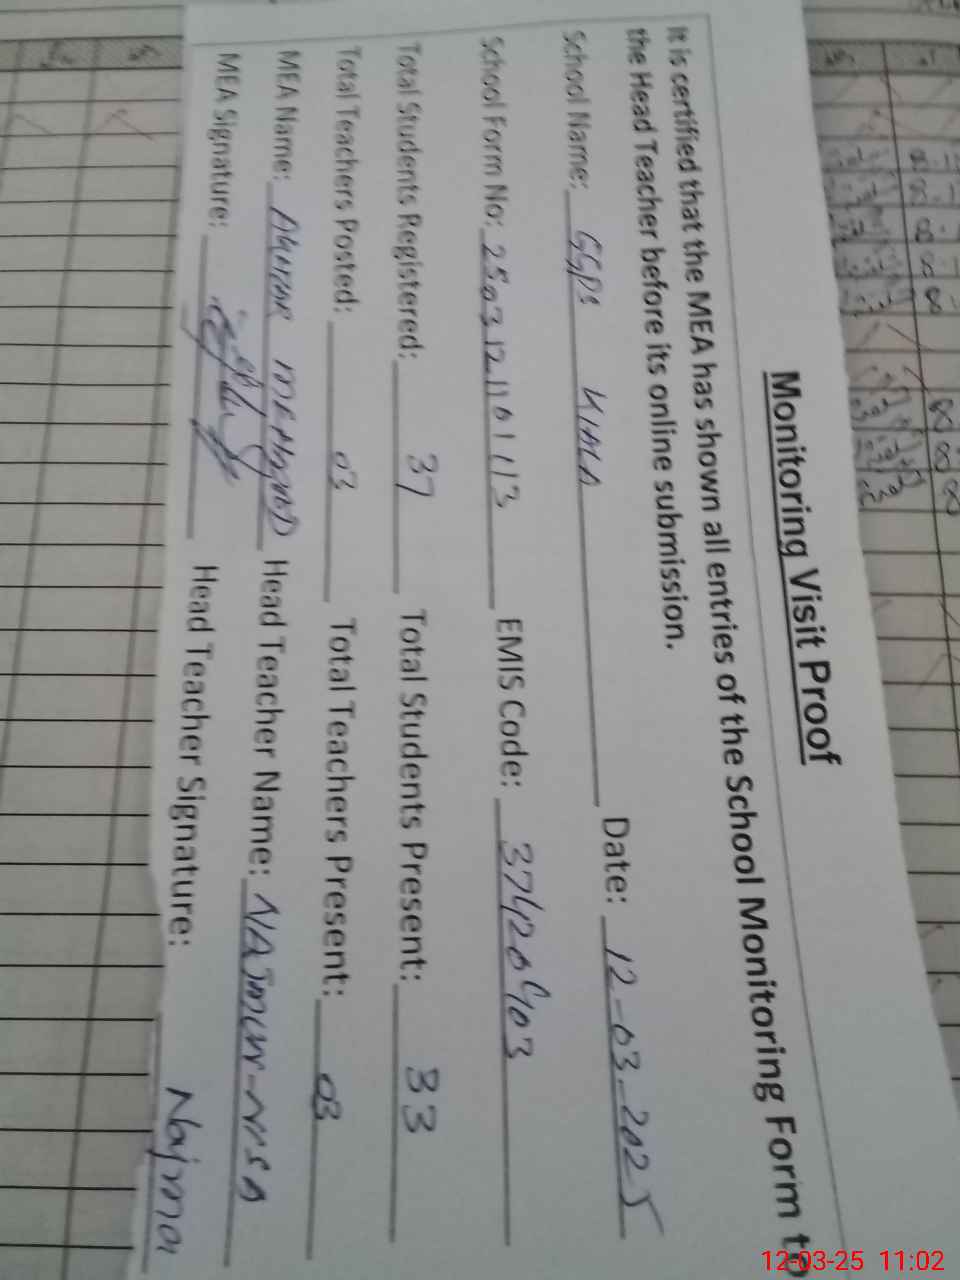 Monitoring Visit Proof
It is certified that the MEA has shown all entries of the School Monitoring Form to
the Head Teacher before its online submission.
School Name: GGPS KIMA Date: 12-03-2025
School Form No: 2503121101113 EMIS Code: 37420403
Total Students Registered: 37 Total Students Present: 33
Total Teachers Posted: 03 Total Teachers Present: 03
MEA Name: AKHTAR MEHMOOD Head Teacher Name: NAJMUN-NISA
MEA Signature: Head Teacher Signature: Najma
12-03-25 11:02